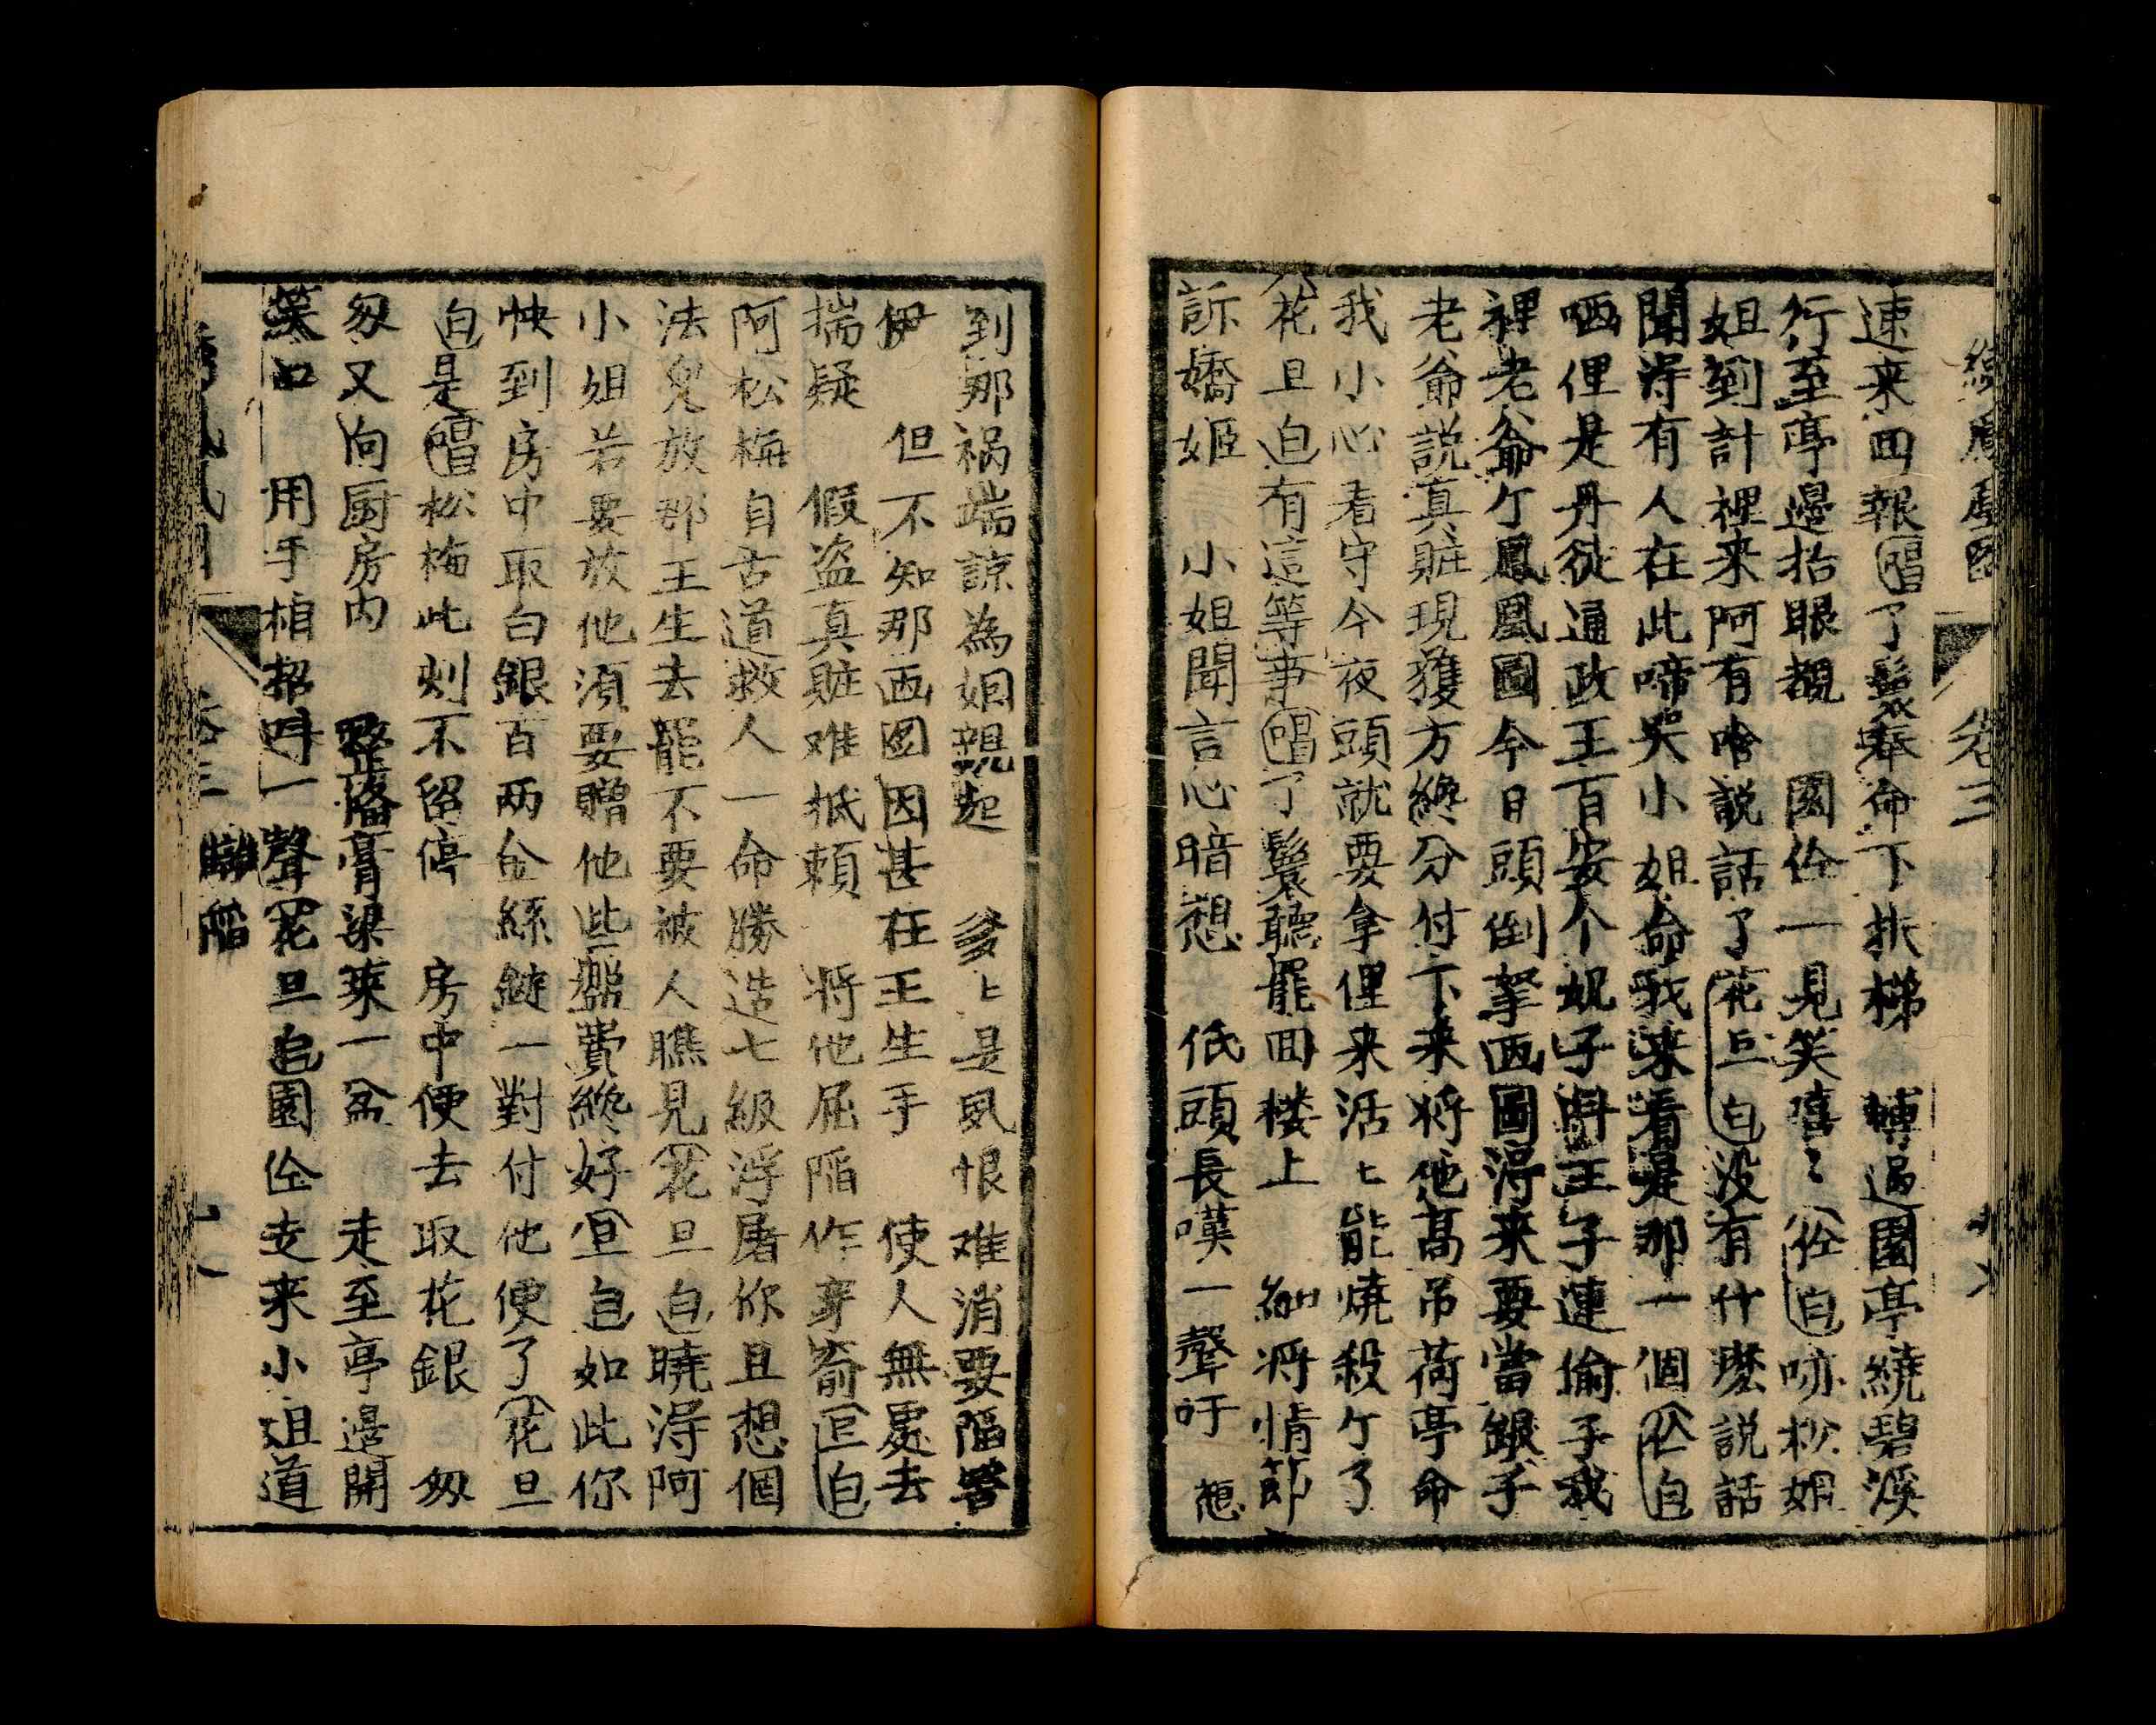 卷三
速来回報唱了鬟奉命下扶梯 轉過園亭繞碧溪
行至亭邊抬眼觀 園伀一見笑嘻〻伀白咏松姐
姐到計裡来阿有啥説話了花旦白没有什麽説話
聞淂有人在此啼哭小姐命我来看是那一個伀白
哂俚是丹徒通政王百安个兒子呌王子連偷子我
裡老爺ケ鳳凰圖今日頭倒拏西圖淂来要當銀子
老爺説真賍現獲方終分付下来将他高吊荷亭命
我小心看守今夜頭就要拿俚来活〻能燒殺ケ了
花旦白有這等事唱了鬟聽罷回楼上 細将情節
訴嬌姬 小姐聞言心暗想 低頭長嘆一聲吁 想
到那禍端諒為姻親起 爹〻是夙恨难消要陷害
伊 但不知那西图因甚在王生手 使人無處去
揣疑 假盗真賍难抵賴 将他屈陷作穿窬旦白
阿松梅自古道救人一命勝造七級浮屠你且想個
法兒放那王生去罷不要被人瞧見花旦白曉淂阿
小姐若要放他須要贈他些盤費終好旦白如此你
快到房中取白銀百两金絲鐲一對付他便了花旦
白是唱松梅此刻不留停 房中便去取花銀 匆
匆又向厨房内 整備膏梁菜一盆 走至亭邊開
笑口 用手相招呌一聲花旦白園伀走来小姐道
卷三